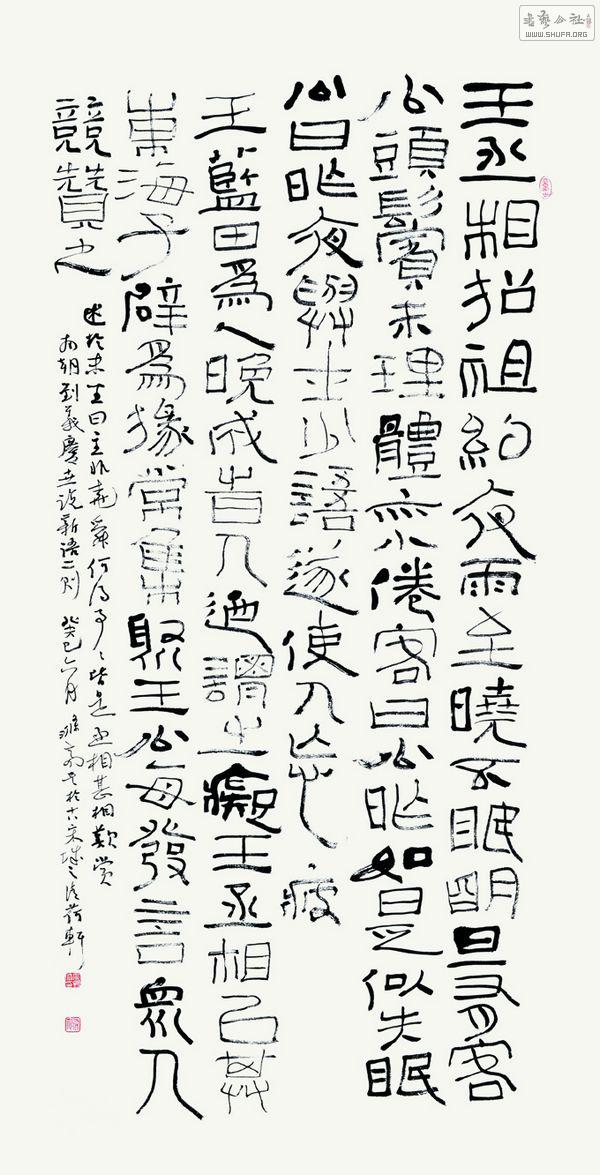 王丞相招祖約夜雨至曉不眠明旦有客
公頭鬢未理體亦小倦客曰公昨如是似失眠
公曰昨夜與士少語遂使人忘疲
王藍田爲人晚成時人迺謂之癡王丞相以其
東海子辟爲掾常集聚王公每發言眾人
競贊之
述於末坐曰主非堯舜何得事〻皆是丞相甚相歎賞
南朝劉義慶世說新語二則 癸巳六月
书艺公社
WWW.SHUFA.ORG